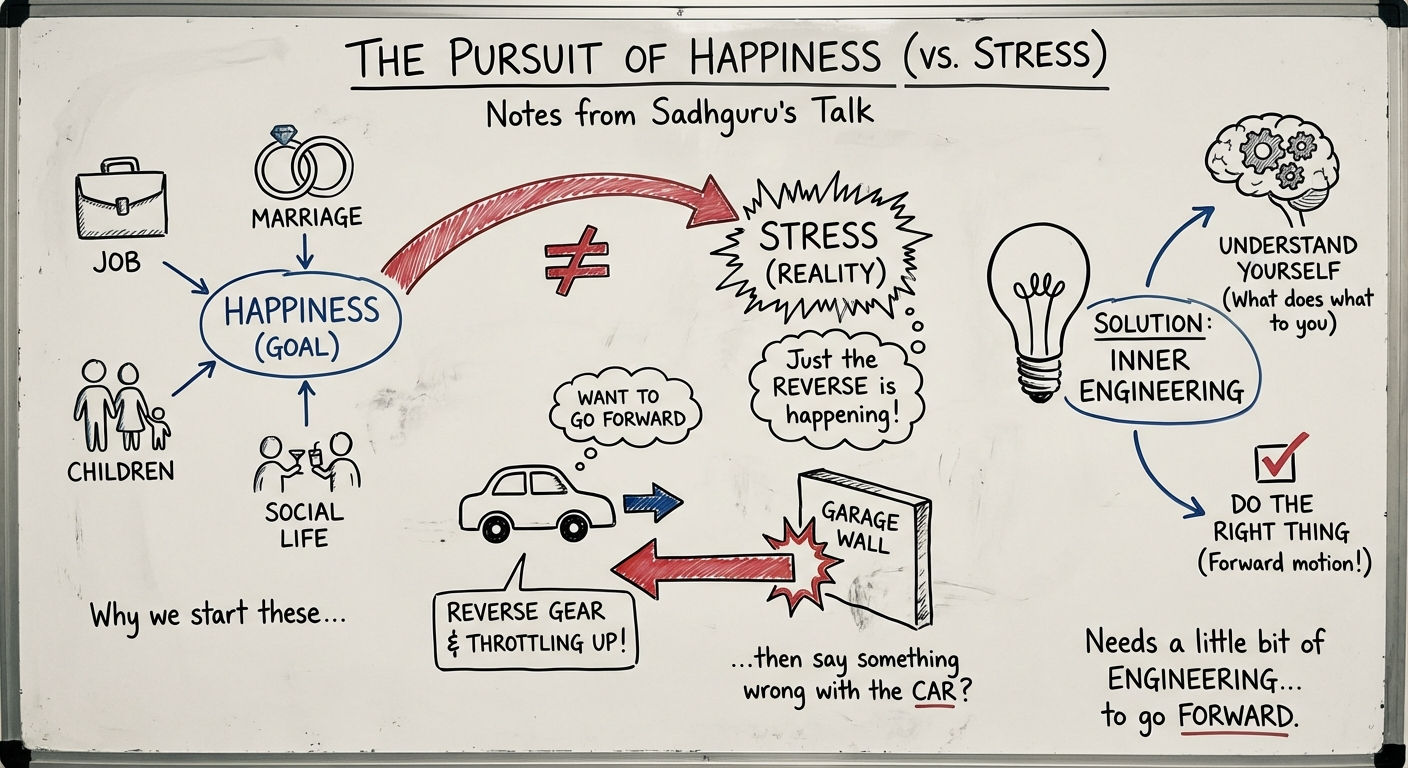 THE PURSUIT OF HAPPINESS (vs. STRESS)
Notes from Sadhguru's Talk
JOB
MARRIAGE
HAPPINESS
(GOAL)
CHILDREN
SOCIAL
LIFE
Why we start these...
≠
STRESS
(REALITY)
Just the
REVERSE is
happening!
WANT TO
GO FORWARD
REVERSE GEAR
& THROTTLING UP!
GARAGE
WALL
...then say something
wrong with the CAR?
SOLUTION:
INNER
ENGINEERING
UNDERSTAND
YOURSELF
(What does what
to you)
DO THE
RIGHT THING
(Forward motion!)
Needs a little bit of
ENGINEERING...
to go FORWARD.